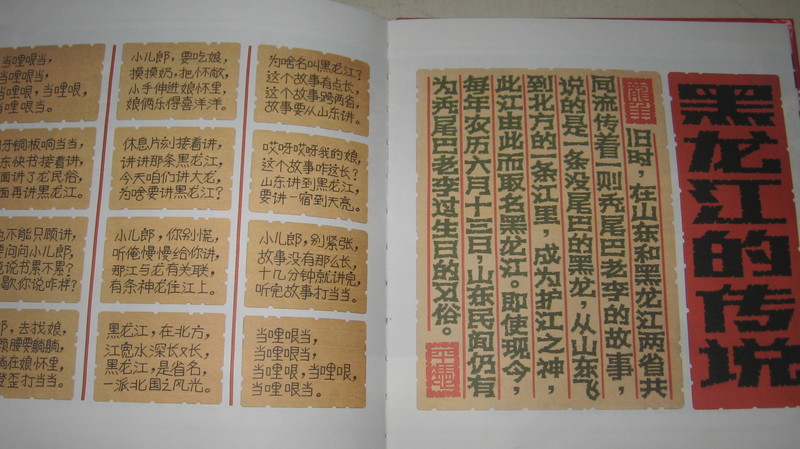 当哩哏当,
当哩哏当,
当哩哏,当哩哏,
当哩哏当。
牙铜板响当当,
东快书接着讲,
面讲了龙民俗,
面再讲黑龙江。
也不能只顾讲,
要问问小儿郎,
说书累不累?
歇你说咋样?
郎,去找娘,
腰要躺躺,
躺在娘怀里,
歪打当当。
小儿郎,要吃娘,
摸摸奶,把怀敞,
小手伸进娘怀里,
娘俩乐得喜洋洋。
休息片刻接着讲,
讲讲那条黑龙江,
今天咱们讲大龙,
为啥要讲黑龙江?
小儿郎,你别慌,
听俺慢慢给你讲,
那江与龙有关联,
有条神龙住江上。
黑龙江,在北方,
江宽水深长又长,
黑龙江,是省名,
一派北国之风光。
为啥名叫黑龙江?
这个故事有点长,
这个故事跨两省,
故事要从山东讲。
哎呀哎呀我的娘,
这个故事咋这长?
山东讲到黑龙江,
要讲一宿到天亮。
小儿郎,别紧张,
故事没有那么长,
十几分钟就讲完,
听完故事打当当。
当哩哏当,
当哩哏当,
当哩哏,当哩哏,
当哩哏当。
黑龙江的传说
旧时,在山东和黑龙江两省共
同流传着一则秃尾巴老李的故事,
说的是一条没尾巴的黑龙,从山东飞
到北方的一条江里,成为护江之神,
此江由此而取名黑龙江。即使现今,
每年农历六月十三日,山东民间仍有
为秃尾巴老李过生日的习俗。